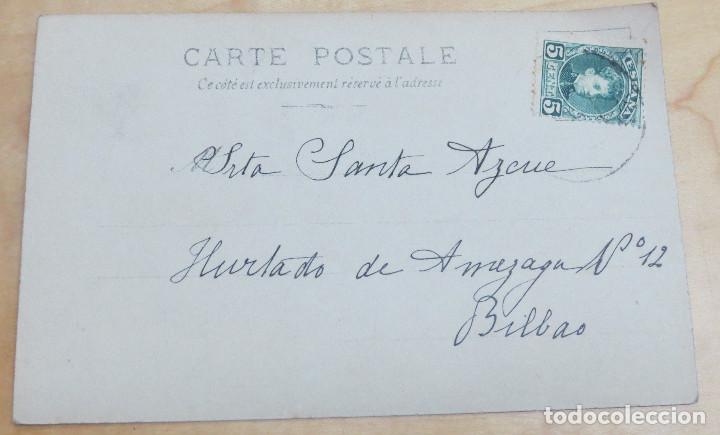 CARTE POSTALE
Ce côté est exclusivement réservé à l'adresse
5 CENT. 5
ESPAÑA
Srta Santa Azcue
Hurtado de Amezaga Nº 12
Bilbao
todocoleccion